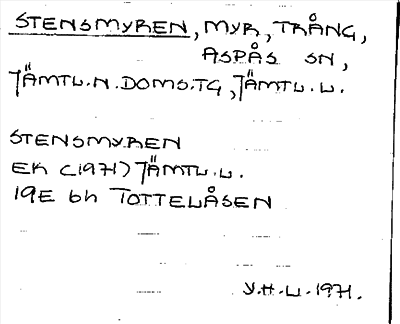 STENSMYREN, MYR, TRÅNG,
ASPÅS SN,
JÄMTL.N.DOMS.TG, JÄMTL.L.
STENSMYREN
EK (1971) JÄMTL.L.
19E 6h TOTTELÅSEN
Y.H.L.1971.